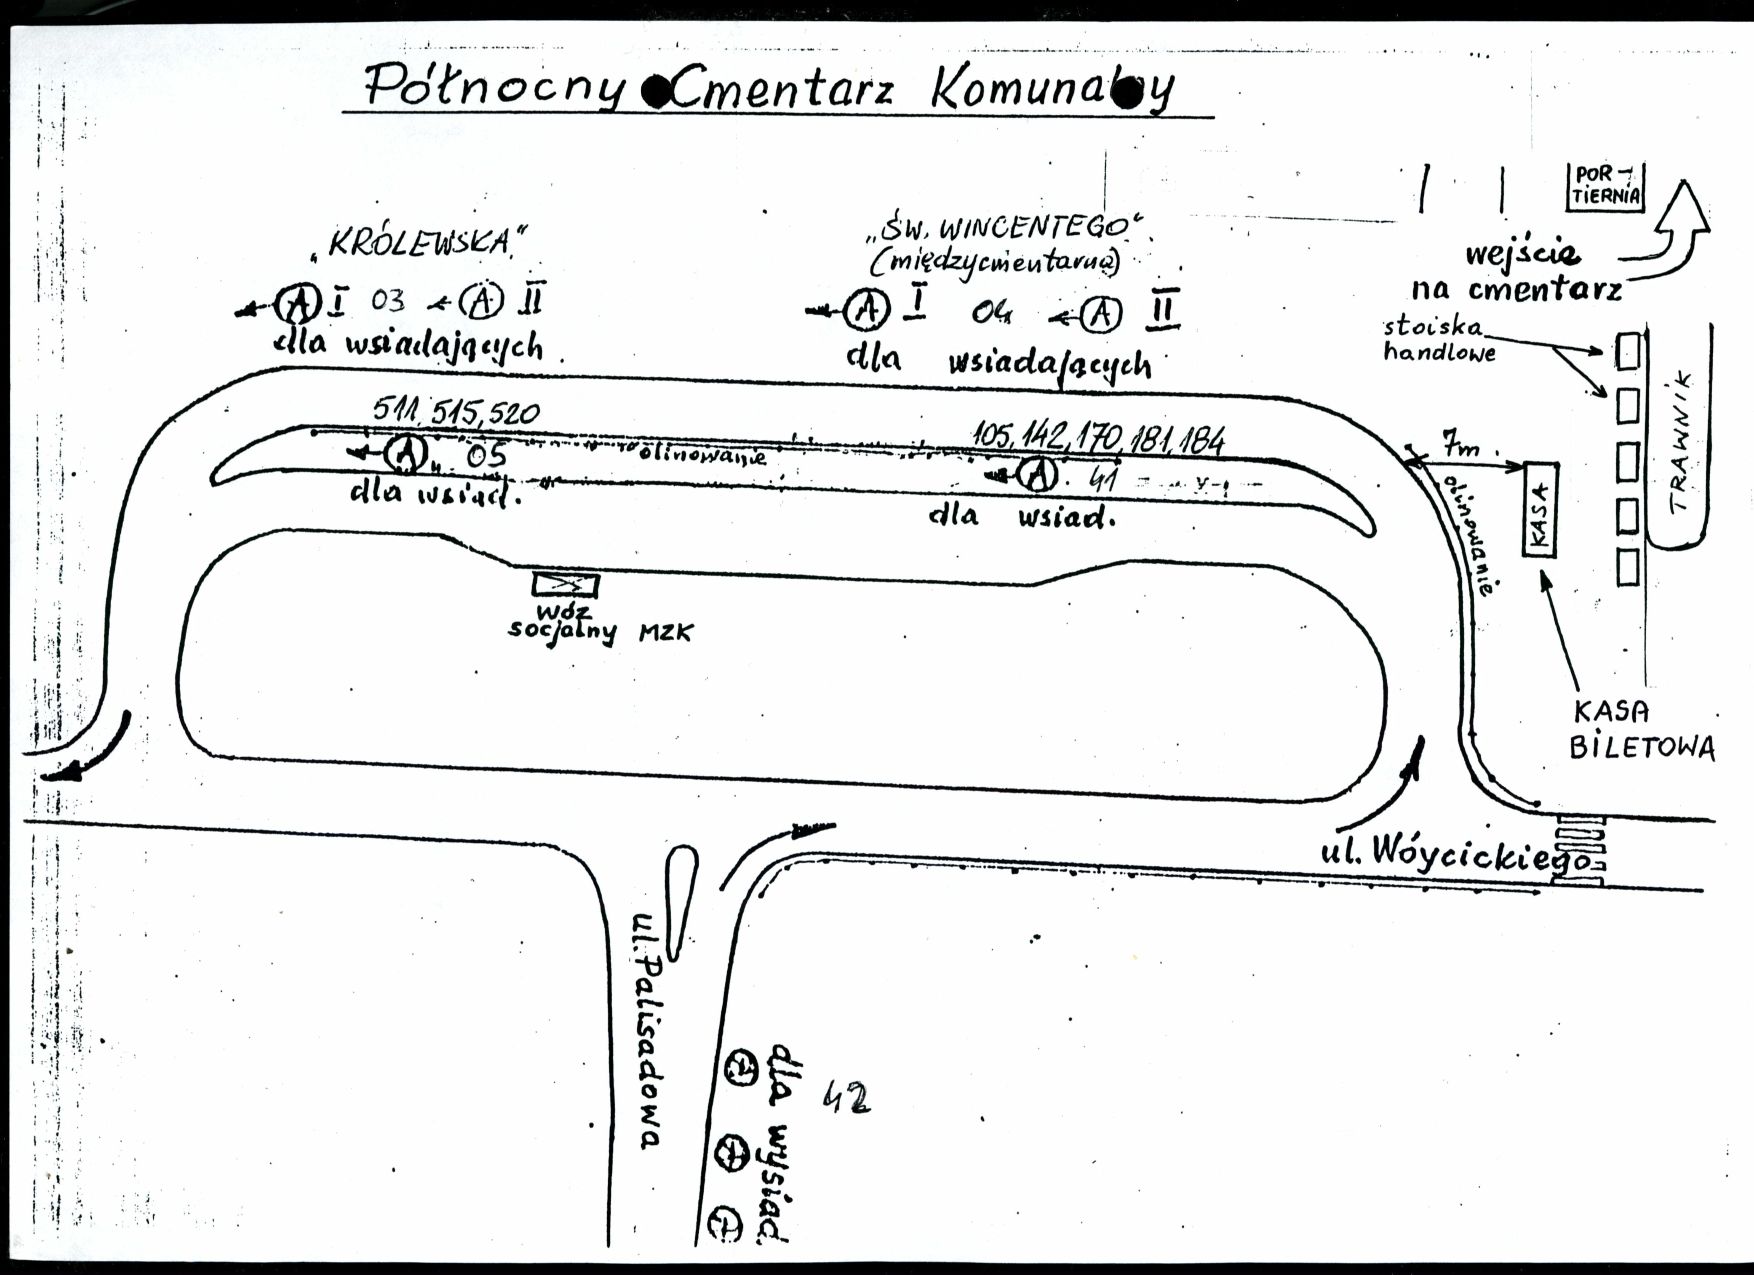 Północny Cmentarz Komunalny
POR-
TIERNIA
wejście
na cmentarz
„KRÓLEWSKA"
A I 03 A II
dla wsiadających
„ŚW. WINCENTEGO"
(międzycmentarna)
A I 04 A II
dla wsiadających
stoiska
handlowe
TRAWNIK
511, 515, 520
A 05
olinowanie
dla wsiad.
105, 142, 170, 181, 184
A 41
dla wsiad.
7m
KASA
olinowanie
WÓZ
socjalny MZK
KASA
BILETOWA
ul. Wóycickiego
ul. Palisadowa
dla wysiad.
A
A
A
42